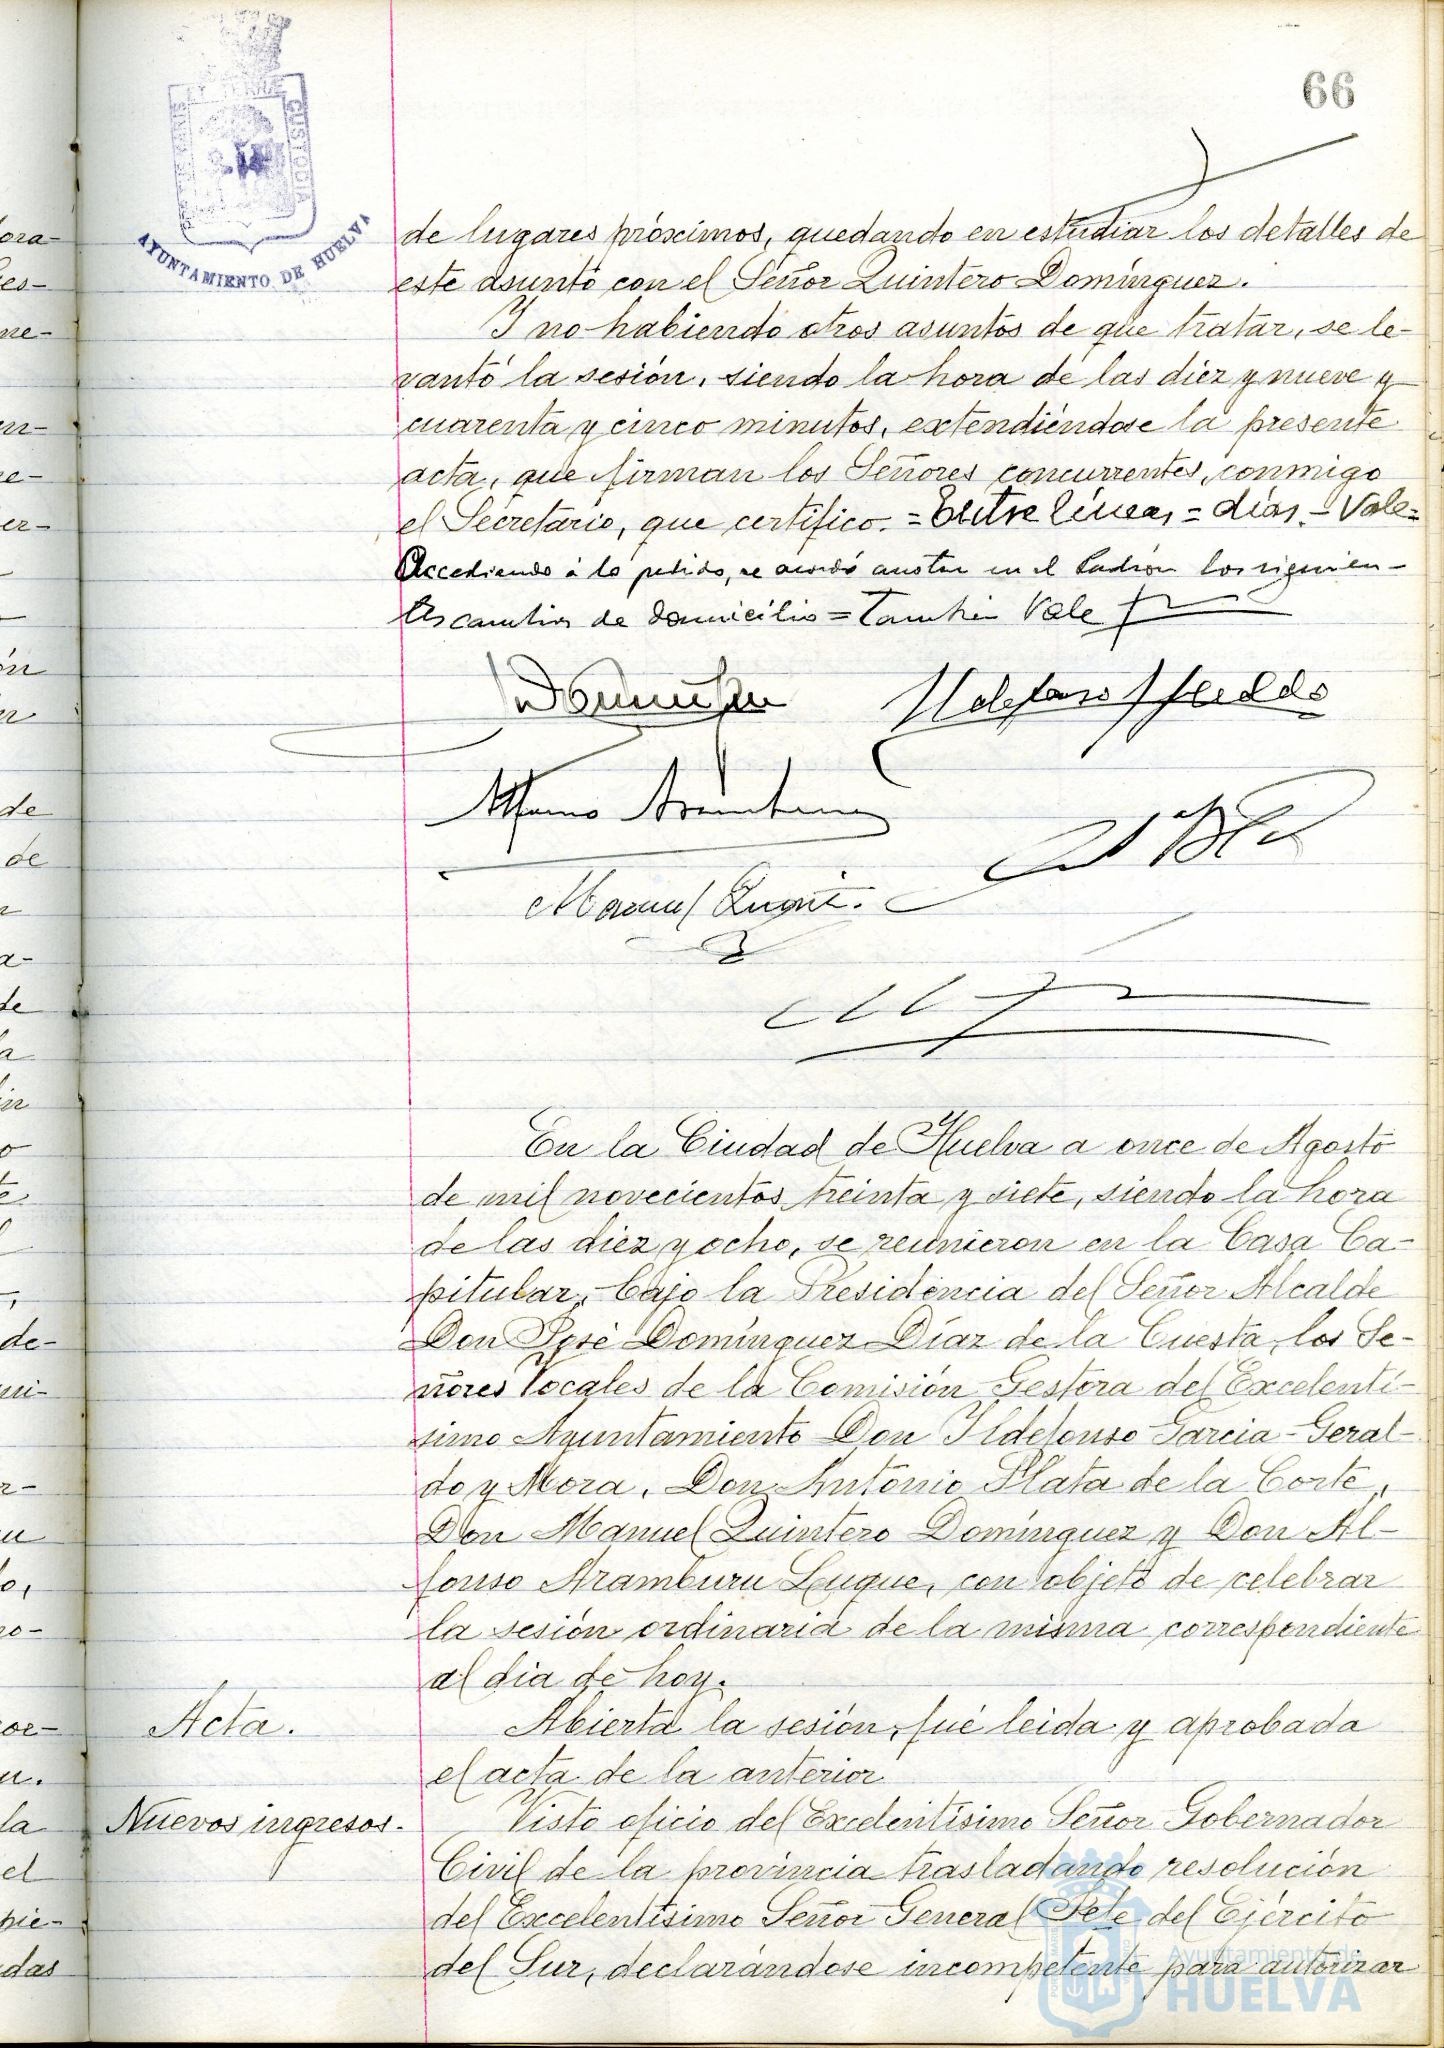 66
PORTUS MARIS ET TERRÆ CUSTODIA
AYUNTAMIENTO DE HUELVA
de lugares próximos, quedando en estudiar los detalles de
este asunto con el Señor Quintero Domínguez.
Y no habiendo otros asuntos de que tratar, se le-
vantó la sesión, siendo la hora de las diez y nueve y
cuarenta y cinco minutos, extendiéndose la presente
acta, que firman los Señores concurrentes, conmigo
el Secretario, que certifico. = Entre líneas = días. - Vale =
Accediendo á lo pedido, se acordó anotar en el Padrón los siguien-
tes cambios de domicilio = También Vale
Ildefonso Geraldo
Alfonso Aramburu
Manuel Quint.
En la Ciudad de Huelva a once de Agosto
de mil novecientos treinta y siete, siendo la hora
de las diez y ocho, se reunieron en la Casa Ca-
pitular, bajo la Presidencia del Señor Alcalde
Don José Domínguez Díaz de la Cuesta, los Se-
ñores Vocales de la Comisión Gestora del Excelentí-
simo Ayuntamiento Don Ildefonso Garcia-Geral-
do y Mora, Don Antonio Plata de la Corte,
Don Manuel Quintero Domínguez y Don Al-
fonso Aramburu Luque, con objeto de celebrar
la sesión ordinaria de la misma correspondiente
al dia de hoy.
Acta.
Abierta la sesión, fué leida y aprobada
el acta de la anterior
Nuevos ingresos.
Visto oficio del Excelentísimo Señor Gobernador
Civil de la provincia trasladando resolución
del Excelentísimo Señor General Jefe del Ejército
del Sur, declarándose incompetente para autorizar
Ayuntamiento de
HUELVA